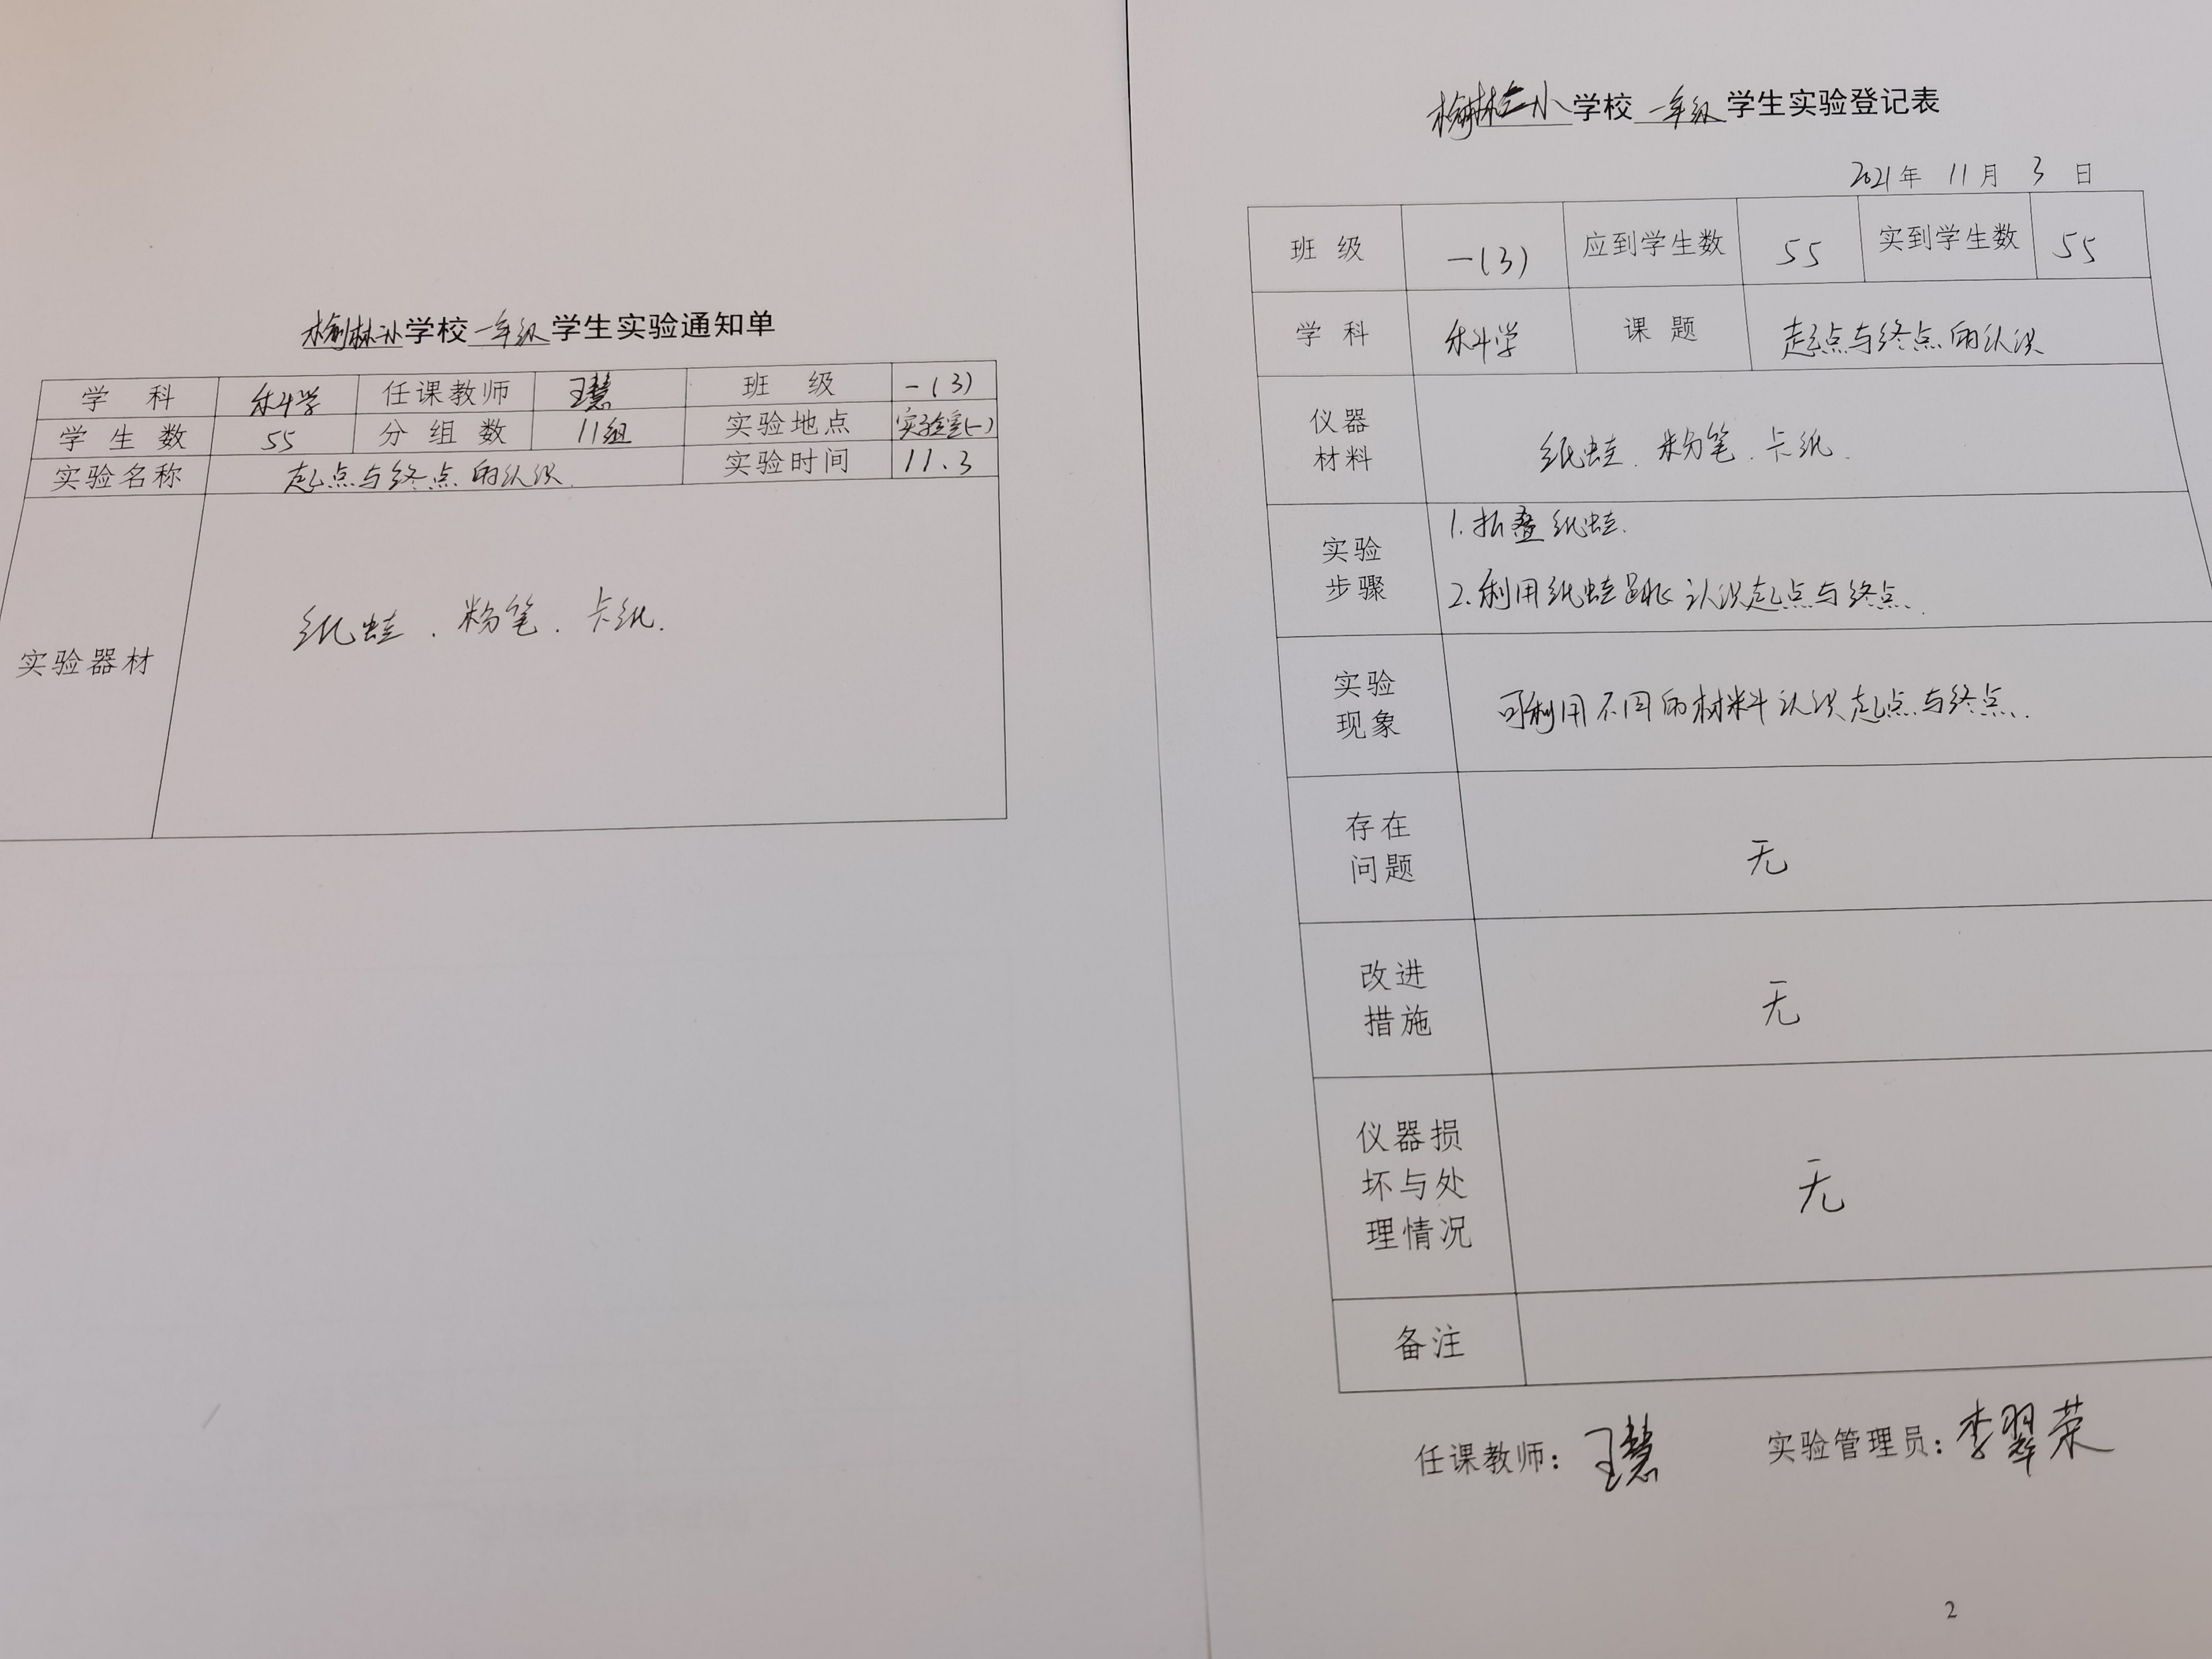 榆林小学校一年级学生实验通知单
学科 科学 任课教师 王慧 班级 一(3)
学生数 55 分组数 11组 实验地点 实验室(一)
实验名称 起点与终点的认识 实验时间 11.3
实验器材 纸蛙、粉笔、卡纸.
榆林小学校一年级学生实验登记表
2021年 11月 3日
班级 一(3) 应到学生数 55 实到学生数 55
学科 科学 课题 起点与终点的认识
仪器
材料
纸蛙、粉笔、卡纸.
实验
步骤
1.折叠纸蛙.
2.利用纸蛙跳认识起点与终点.
实验
现象
可利用不同的材料认识起点与终点.
存在
问题
无
改进
措施
无
仪器损
坏与处
理情况
无
备注
任课教师：王慧 实验管理员：李翠荣
2